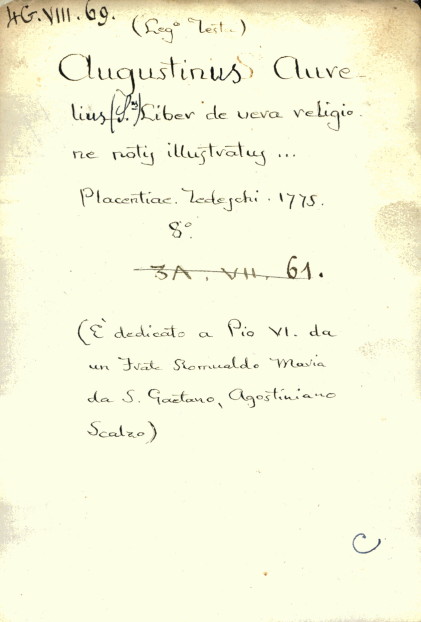 4G.VIII.69.
(Leg° Test..)
Augustinus Aure-
lius (S.s) Liber de vera religio-
ne notis illustratus ...
Placentiae. Tedeschi. 1775.
8°.
3A. VII. 61.
(È dedicato a Pio VI. da
un Frate Romualdo Maria
da S. Gaetano, Agostiniano
Scalzo)
C